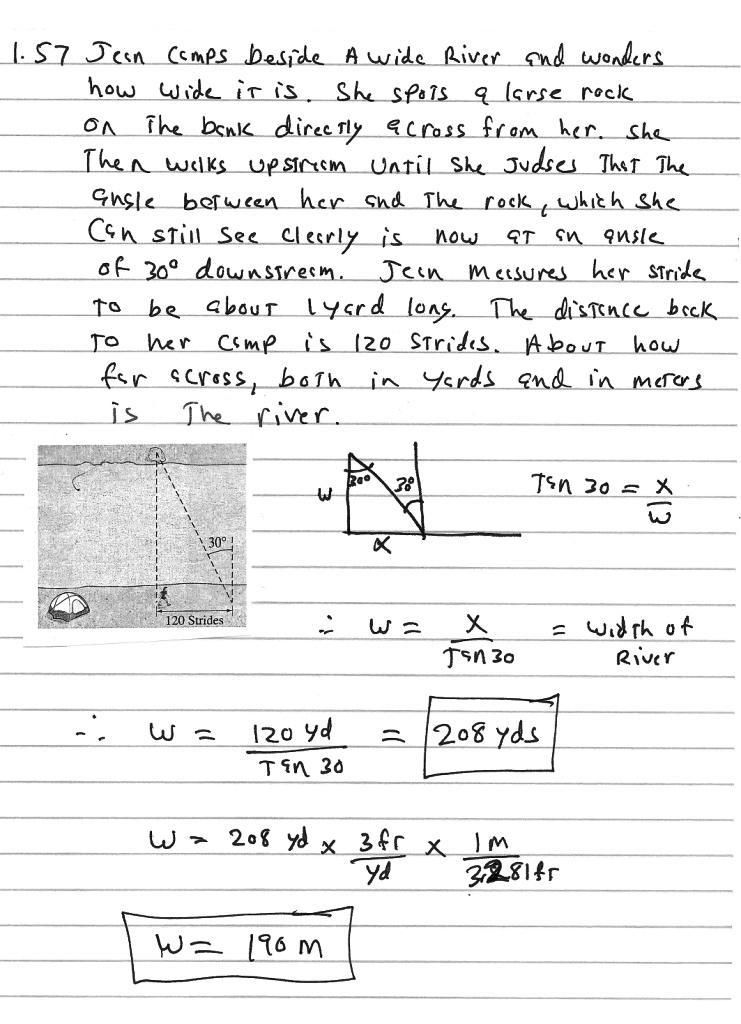 1.57 Jean camps beside A wide River and wonders
how wide it is. She spots a large rock
on The bank directly across from her. she
Then walks upstream until she Judges That The
angle between her and The rock, which she
Can still see clearly is now at an angle
of 30° downstream. Jean measures her stride
to be about 1 yard long. The distance back
to her camp is 120 strides. About how
far across, both in yards and in meters
is The river.
30°
120 Strides
W
30°
30
x
Tan 30 = x/w
∴ W = x/Tan 30 = width of River
∴ W = 120 yd/Tan 30 = 208 yds
W = 208 yd x 3ft/yd x 1m/3.281ft
W = 190 m